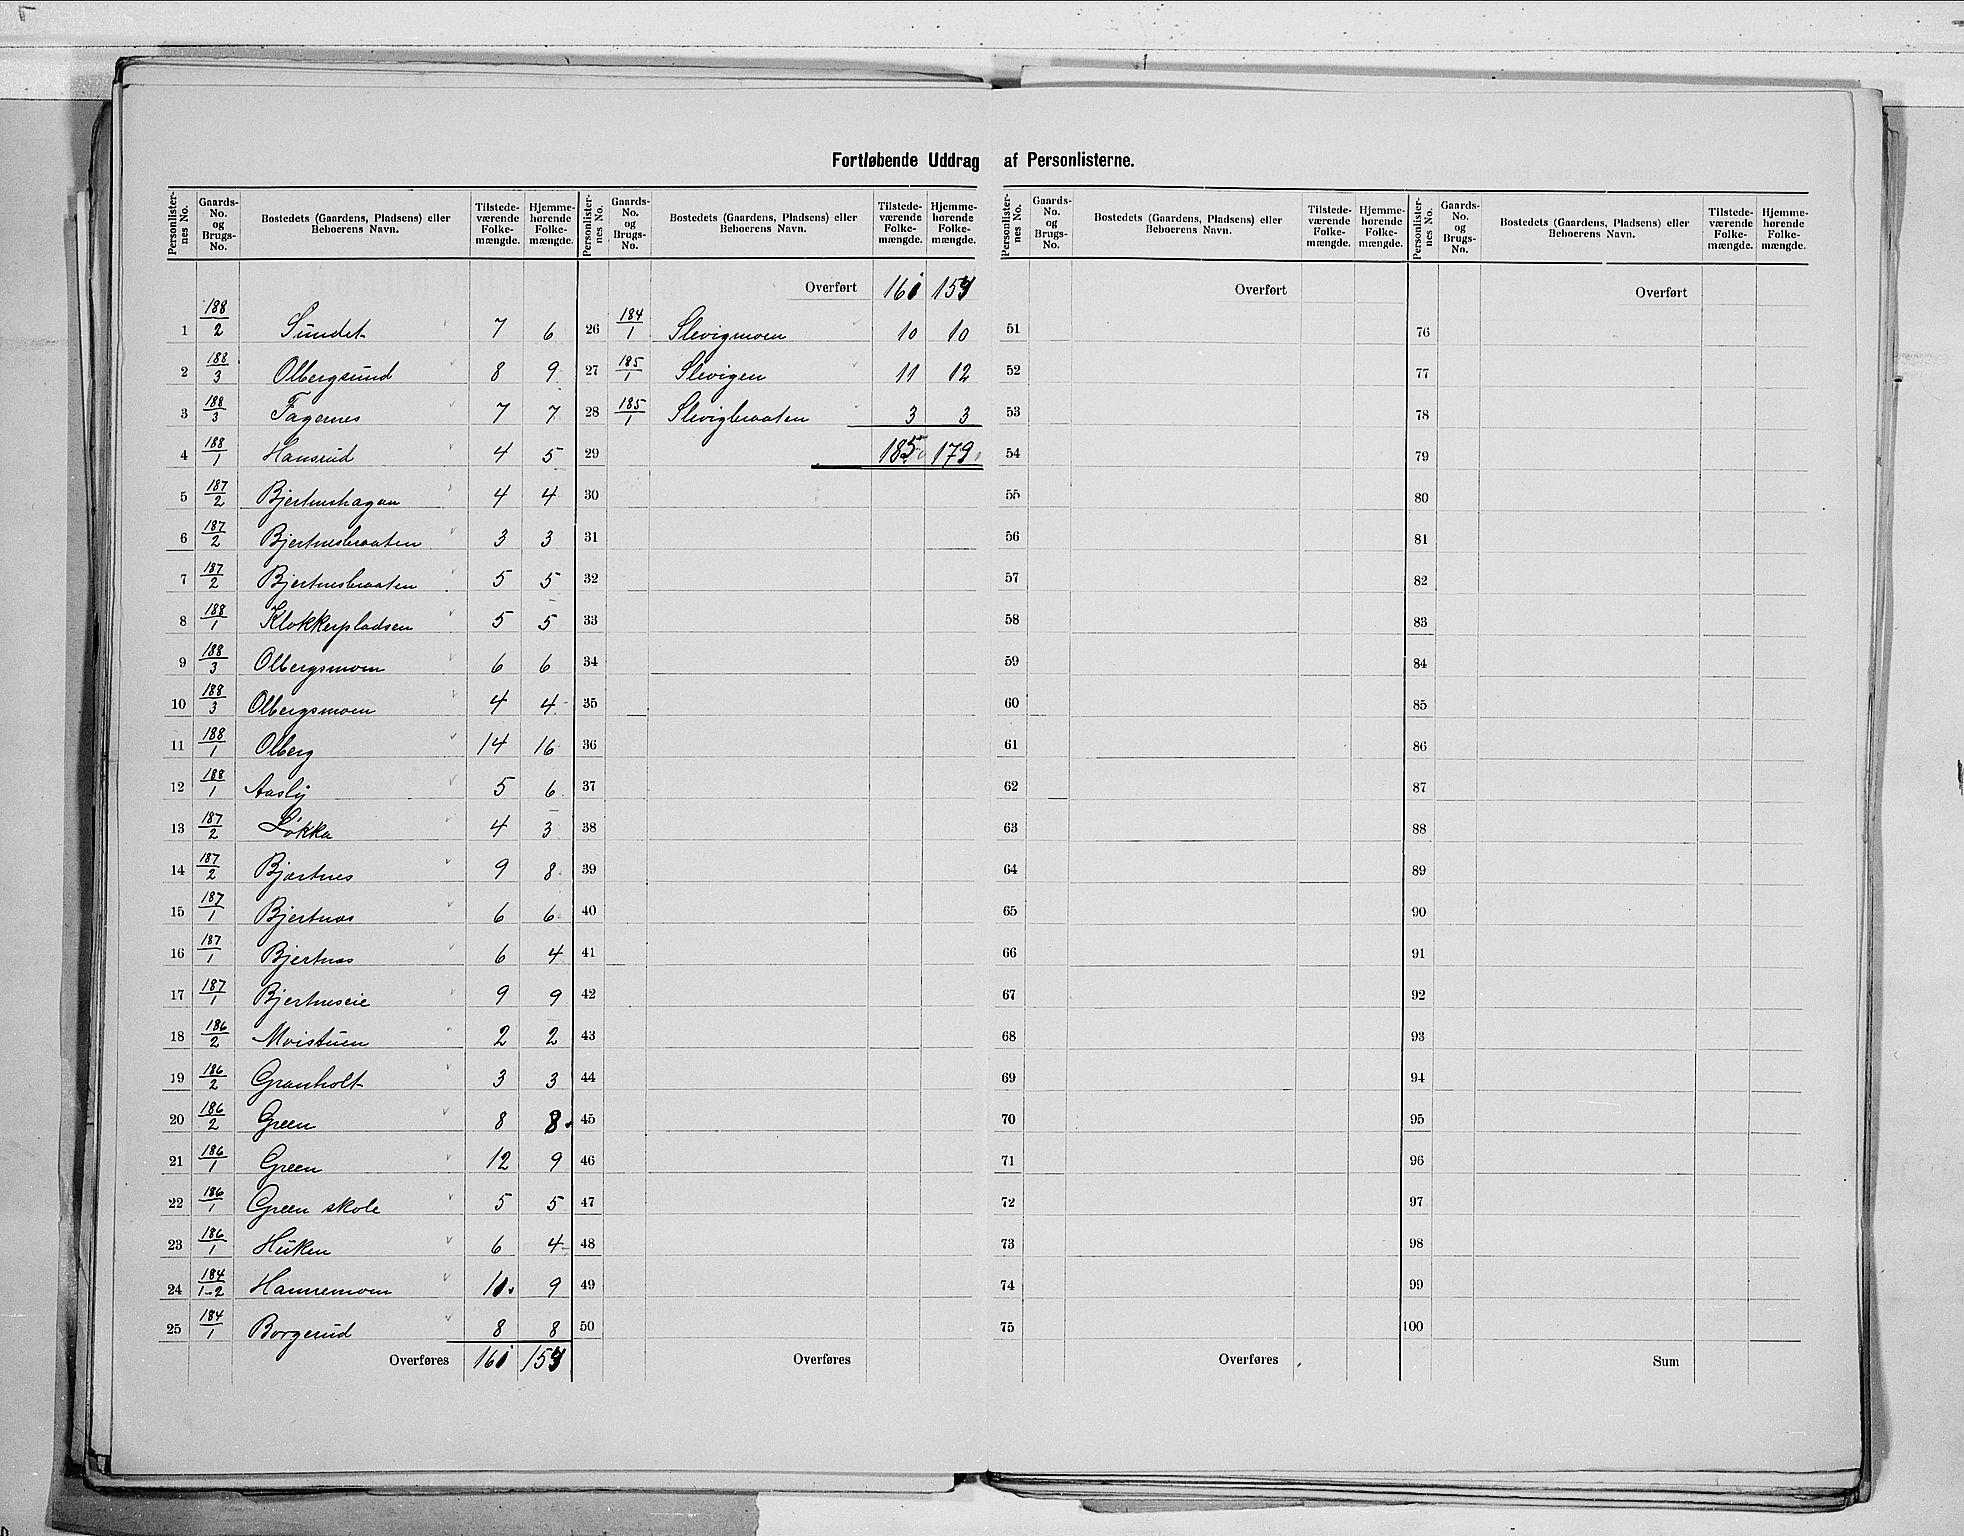 Fortløbende Uddrag af Personlisterne.
Personlister-nes No. | Gaards-No. og Brugs-No. | Bostedets (Gaardens, Pladsens) eller Beboerens Navn. | Tilstede-værende Folke-mængde. | Hjemme-hørende Folke-mængde.
1 188/2 Sundet 7 6
2 188/3 Olbergsund 8 9
3 188/3 Fagernes 7 7
4 188/1 Hansrud 4 5
5 187/2 Bjertneshagen 4 4
6 187/2 Bjertnesbraaten 3 3
7 187/2 Bjertnesbraaten 5 5
8 188/1 Klokkerpladsen 5 5
9 188/3 Olbergsmoen 6 6
10 188/3 Olbergsmoen 4 4
11 188/1 Olberg 14 16
12 188/1 Aasly 5 6
13 187/2 Løkka 4 3
14 187/2 Bjærtnes 9 8
15 187/1 Bjertnæs 6 6
16 187/1 Bjertnæs 6 4
17 187/1 Bjertneseie 9 9
18 186/2 Moistuen 2 2
19 186/2 Granholt 3 3
20 186/2 Green 8 8
21 186/1 Green 12 9
22 186/1 Green skole 5 5
23 186/1 Huken 6 4
24 184/1-2 Hannemoen 11 9
25 184/1 Borgerud 8 8
Overføres 161 154
Personlister-nes No. | Gaards-No. og Brugs-No. | Bostedets (Gaardens, Pladsens) eller Beboerens Navn. | Tilstede-værende Folke-mængde. | Hjemme-hørende Folke-mængde.
Overført 161 154
26 184/1 Slevigmoen 10 10
27 185/1 Slevigen 11 12
28 185/1 Slevigbraaten 3 3
29 185 179
30
31
32
33
34
35
36
37
38
39
40
41
42
43
44
45
46
47
48
49
50
Overføres
Personlister-nes No. | Gaards-No. og Brugs-No. | Bostedets (Gaardens, Pladsens) eller Beboerens Navn. | Tilstede-værende Folke-mængde. | Hjemme-hørende Folke-mængde.
Overført
51
52
53
54
55
56
57
58
59
60
61
62
63
64
65
66
67
68
69
70
71
72
73
74
75
Overføres
Personlister-nes No. | Gaards-No. og Brugs-No. | Bostedets (Gaardens, Pladsens) eller Beboerens Navn. | Tilstede-værende Folke-mængde. | Hjemme-hørende Folke-mængde.
Overført
76
77
78
79
80
81
82
83
84
85
86
87
88
89
90
91
92
93
94
95
96
97
98
99
100
Sum